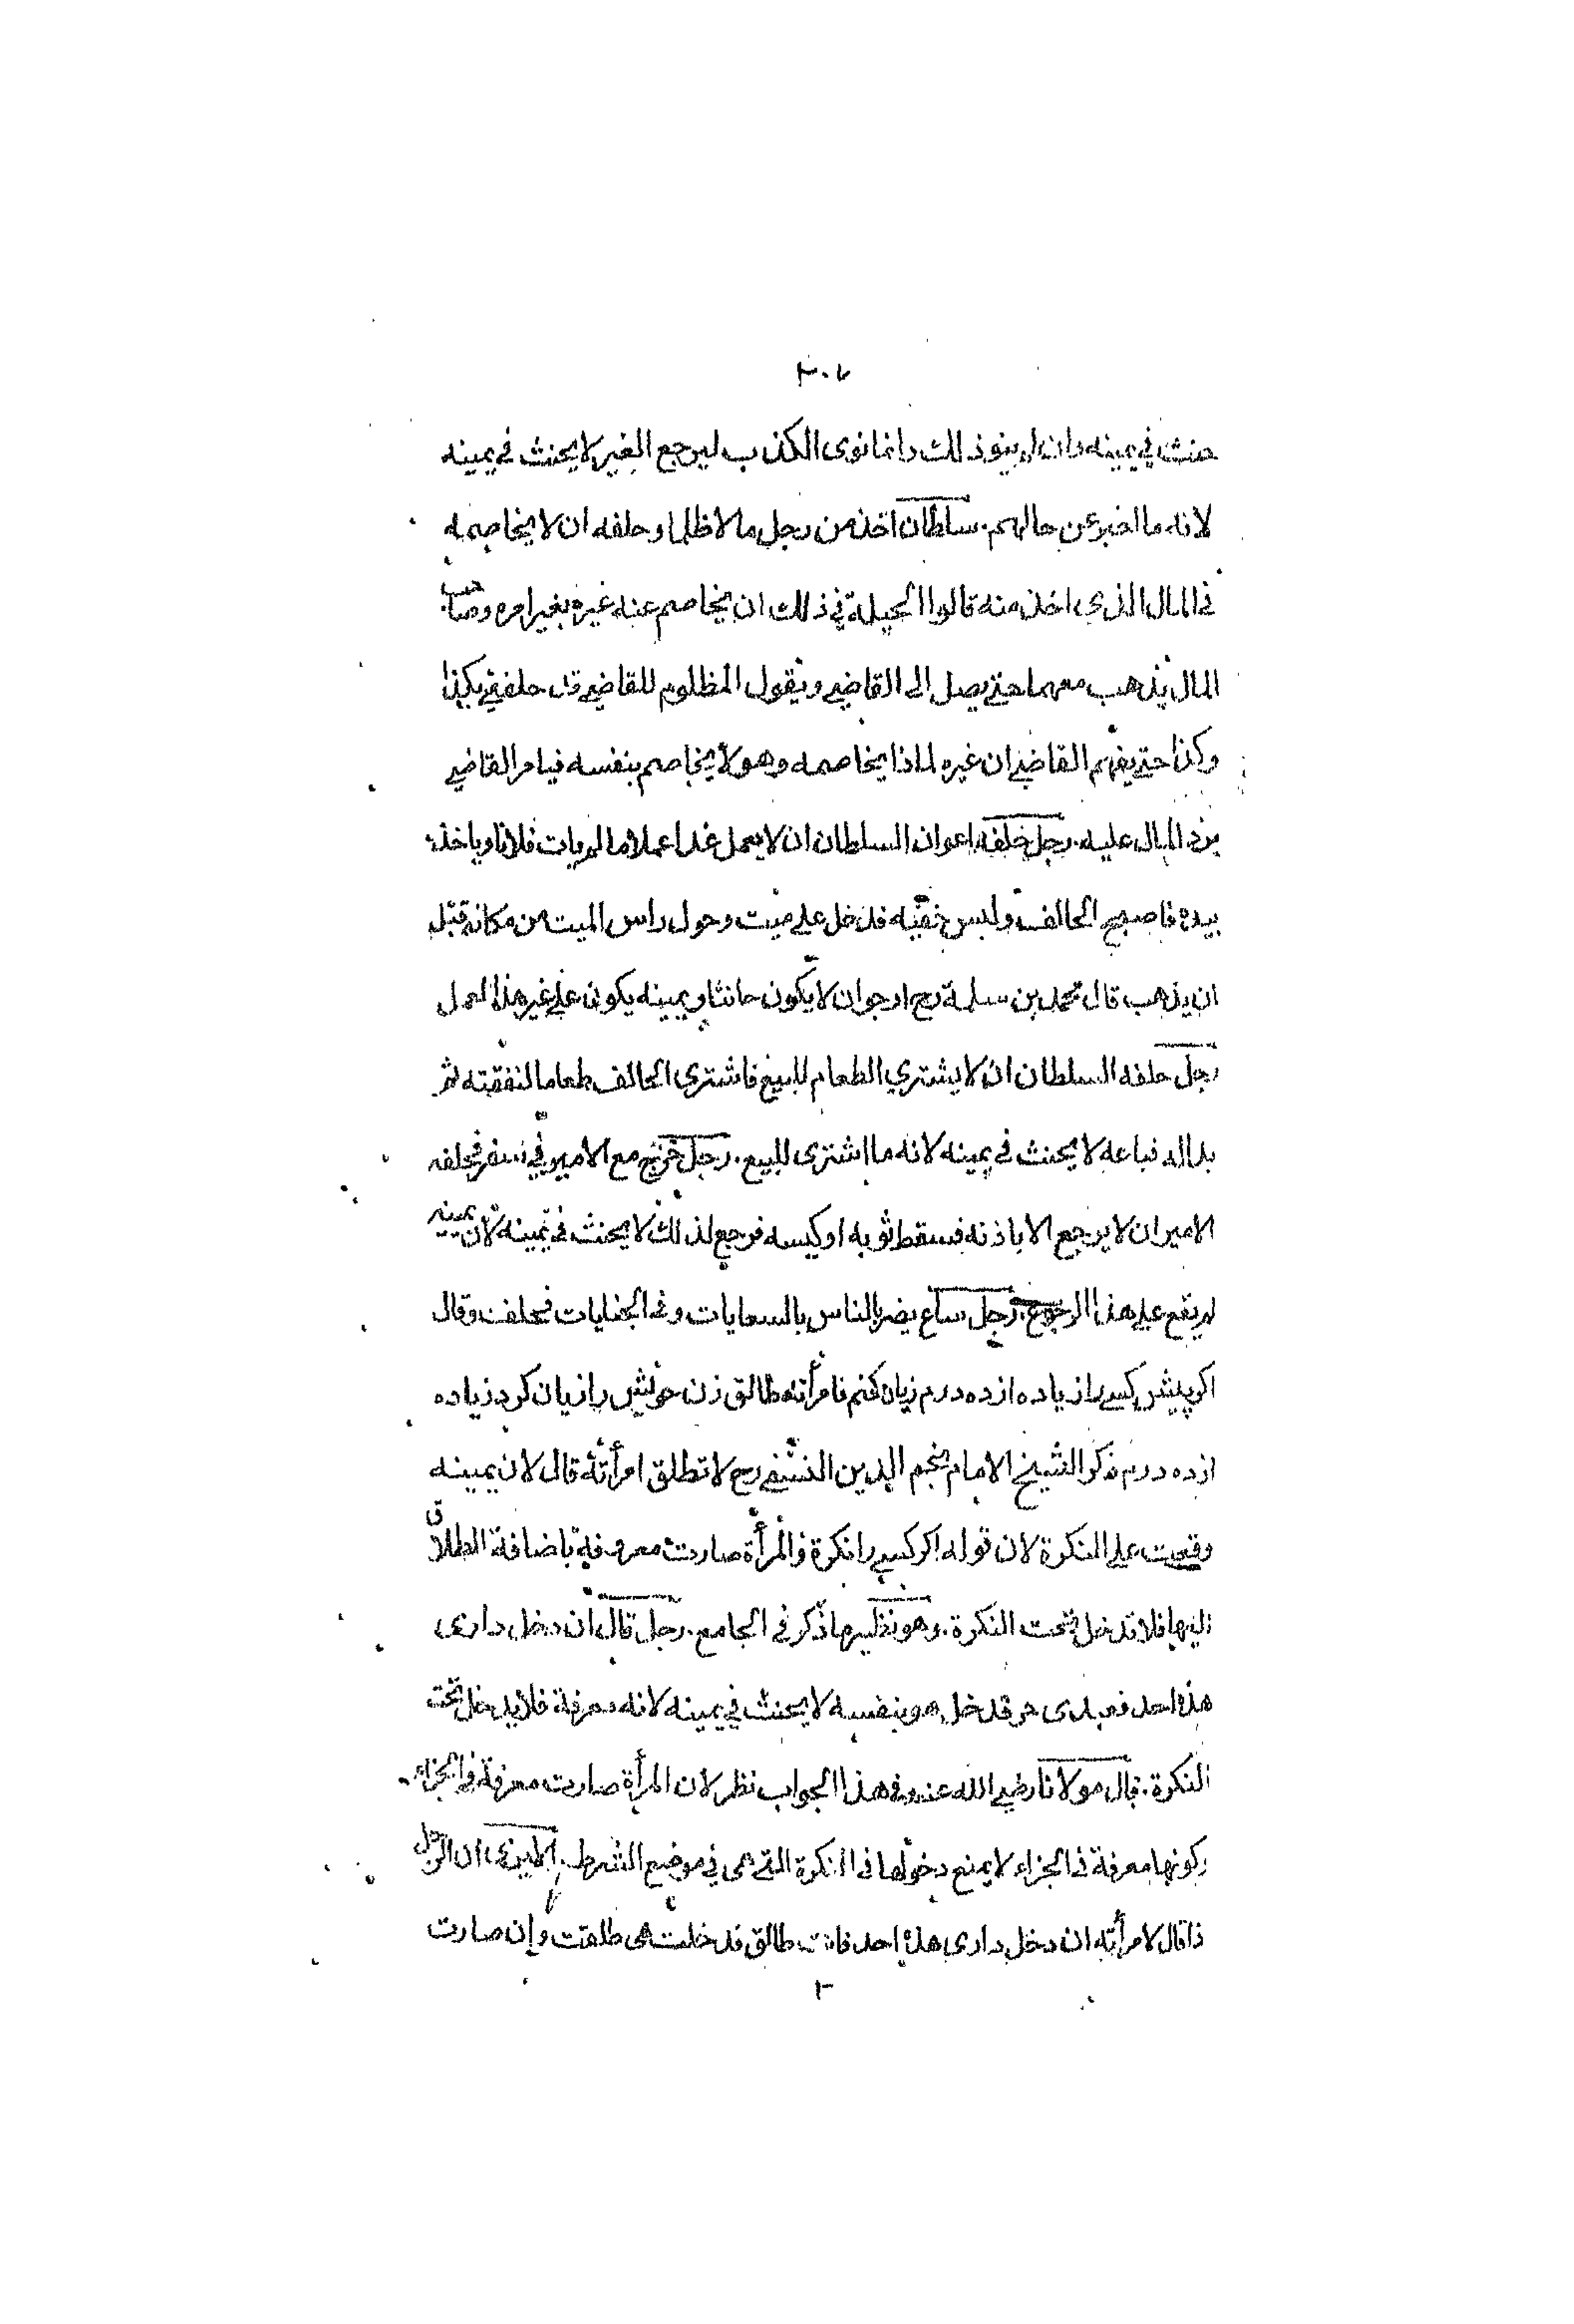 ٣٠٧
حنث في يمينه وان لم ينو ذلك وانما نوى الكذب ليرجع الغير لا يحنث في يمينه
لانه ما اخبر عن حالهم. سلطان اخذ من رجل مالا ظلما وحلفه ان لا يخاصمه
في المال الذي اخذ منه قالوا الحيلة في ذلك ان يخاصم عنه غيره بغير امره وصاحب
المال يذهب معهما حتى يصل الى القاضي ويقول المظلوم للقاضي قد حلفني بكذا
وكذا حتى يفهم القاضي ان غيره لماذا يخاصمه وهو لا يخاصم بنفسه فيامر القاضي
برد المال عليه. رجل حلفه اعوان السلطان ان لا يعمل غدا عملا ما لم يات فلانا وياخذ
بيده فاصبح الحالف ولبس خفيه فدخل على ميت وحول راس الميت من مكانه قبل
ان يذهب قال محمد بن سلمة رح ارجو ان لا يكون حانثا ويمينه يكون على غير هذا العمل
رجل حلفه السلطان ان لا يشتري الطعام للبيع فاشترى الحالف طعاما لنفقته ثم
بدا له فباعه لا يحنث في يمينه لانه ما اشترى للبيع. رجل خرج مع الامير في سفر فحلفه
الامير ان لا يرجع الا باذنه فسقط ثوبه او كيسه فرجع لذلك لا يحنث في يمينه لان يمينه
لم يقع على هذا الرجوع. رجل ساع يضر بالناس بالسعايات و الجنايات فحلف وقال
اكر پیش كسی را زیاده از ده درم زیان كنم فامرأته طالق زن خویش را زیان كرد زیاده
از ده درم ذكر الشيخ الامام نجم الدين النسفي رح لا تطلق امرأته قال لان يمينه
وقعت على النكرة لان قوله اكر كسی را نكرة والمرأة صارت معروفة باضافة الطلاق
اليها فلا تدخل تحت النكرة. وهو نظير ما ذكر في الجامع. رجل قال ان دخل داري
هذه احد فعبدى حر فدخل هو بنفسه لا يحنث في يمينه لانه معرفة فلا يدخل تحت
النكرة. قال مولانا رضي الله عنه وفي هذا الجواب نظر لان المرأة صارت معرفة في الجزاء
وكونها معرفة في الجزاء لا يمنع دخولها في النكرة التي هي في موضع الشرط. ان الرجل
ذا قال لامرأته ان دخل داري هذه احد فانت طالق فدخلت هي طلقت وإن صارت
٢